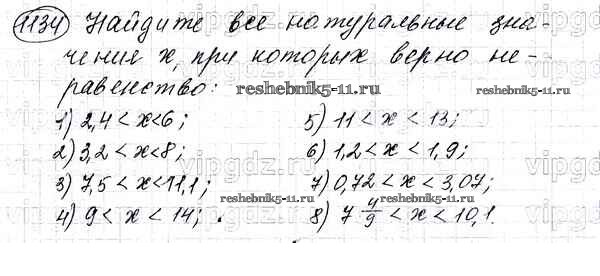 1134 Найдите все натуральные зна-
чения x, при которых верно не-
равенство:
reshebnik5-11.ru
reshebnik5-11.ru
1) 2,4 < x < 6; 5) 11 < x < 13;
2) 3,2 < x < 8; 6) 1,2 < x < 1,9;
3) 7,5 < x < 11,1; 7) 0,72 < x < 3,07;
reshebnik5-11.ru
4) 9 < x < 14; 8) 7 4/9 < x < 10,1.
reshebnik5-11.ru